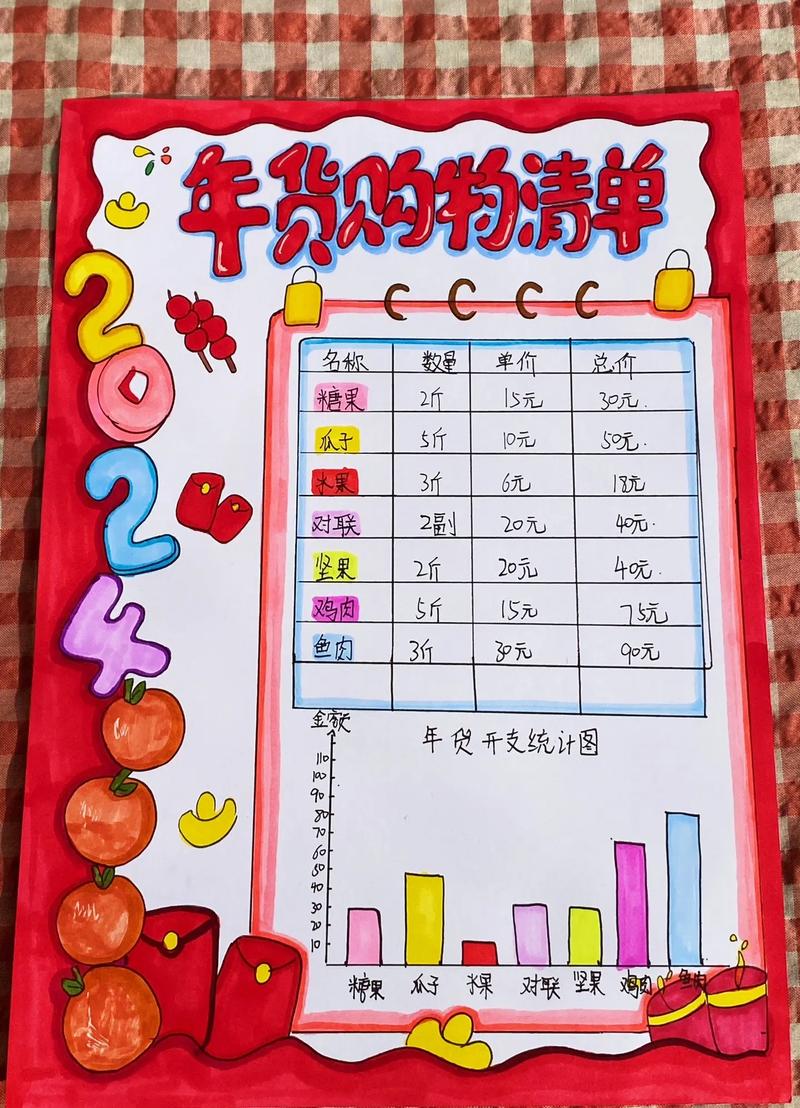 年货购物清单
2024
名称 数量 单价 总价
糖果 2斤 15元 30元.
瓜子 5斤 10元 50元.
水果 3斤 6元 18元
对联 2副 20元 40元.
坚果 2斤 20元 40元.
鸡肉 5斤 15元 75元
鱼肉 3斤 30元 90元
金额
年货开支统计图
110
100
90
80
70
60
50
40
30
20
10
糖果 瓜子 水果 对联 坚果 鸡肉 鱼肉